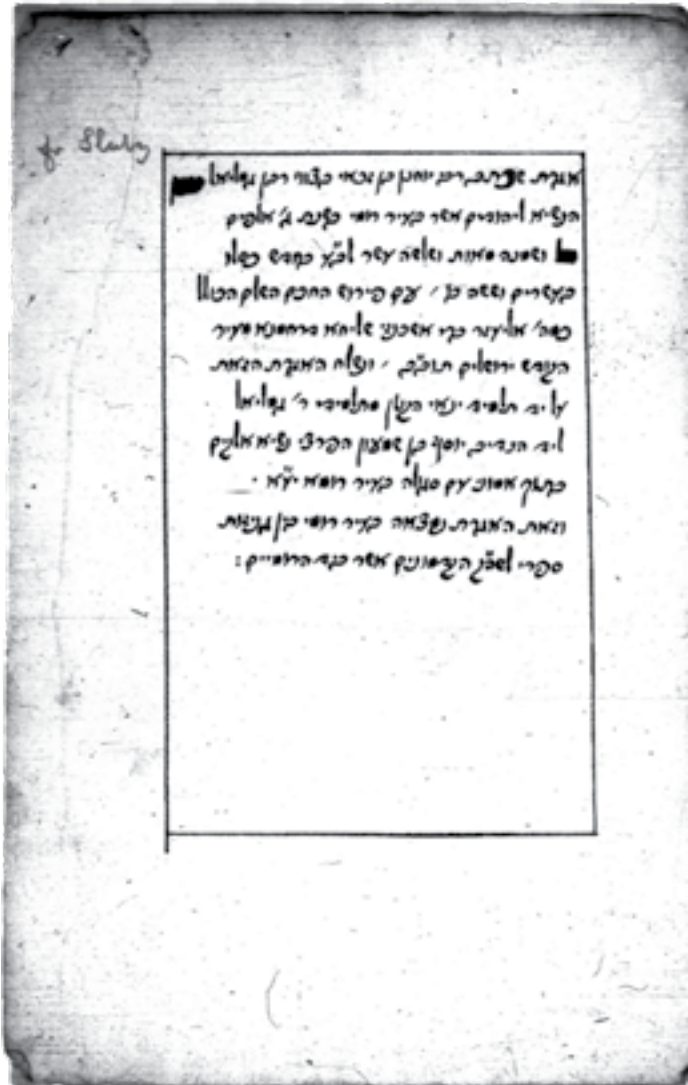 אגרת ששלח רבן יוחנן בן זכאי בצווי רבן גמליאל
הנשיא ליהודים אשר בעיר רומי בשנת ג׳ אלפים
ושמנה מאות ושלשה עשר לב״ע בחדש כסלו
בעשרים וששה בו ׳ עם פירוש החכם השלם הכולל
כמה׳ אליעזר ברי אשכנזי שליחא דרחמנא מעיר
הקודש ירושלים תוב״ב ׳ ונשלח האגרת הזאת
על יד תלמיד ינאי הקטן מתלמידי ר׳ גמליאל
ליד הנדיב יוסף בן שמעון הפרצי נשיא אלהים
בתוך עם סגלה בעיר רומא יע״א ·
וזאת האגרת נמצאה בעיר רומי בין גניזת
ספרי הקדמונים אשר ביד הרומיים :